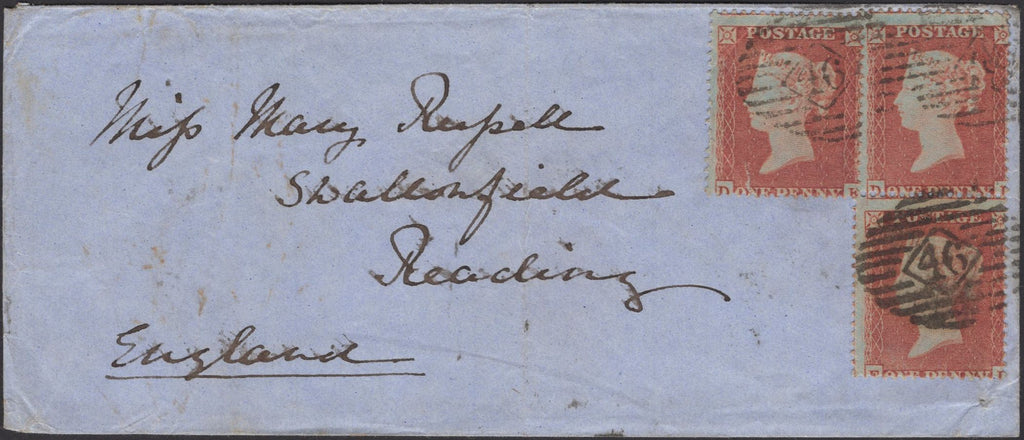 POSTAGE POSTAGE
46
D ONE PENNY D ONE PENNY
POSTAGE
46
E ONE PENNY
Miss Mary Russell
Swallonfield
Reading
England